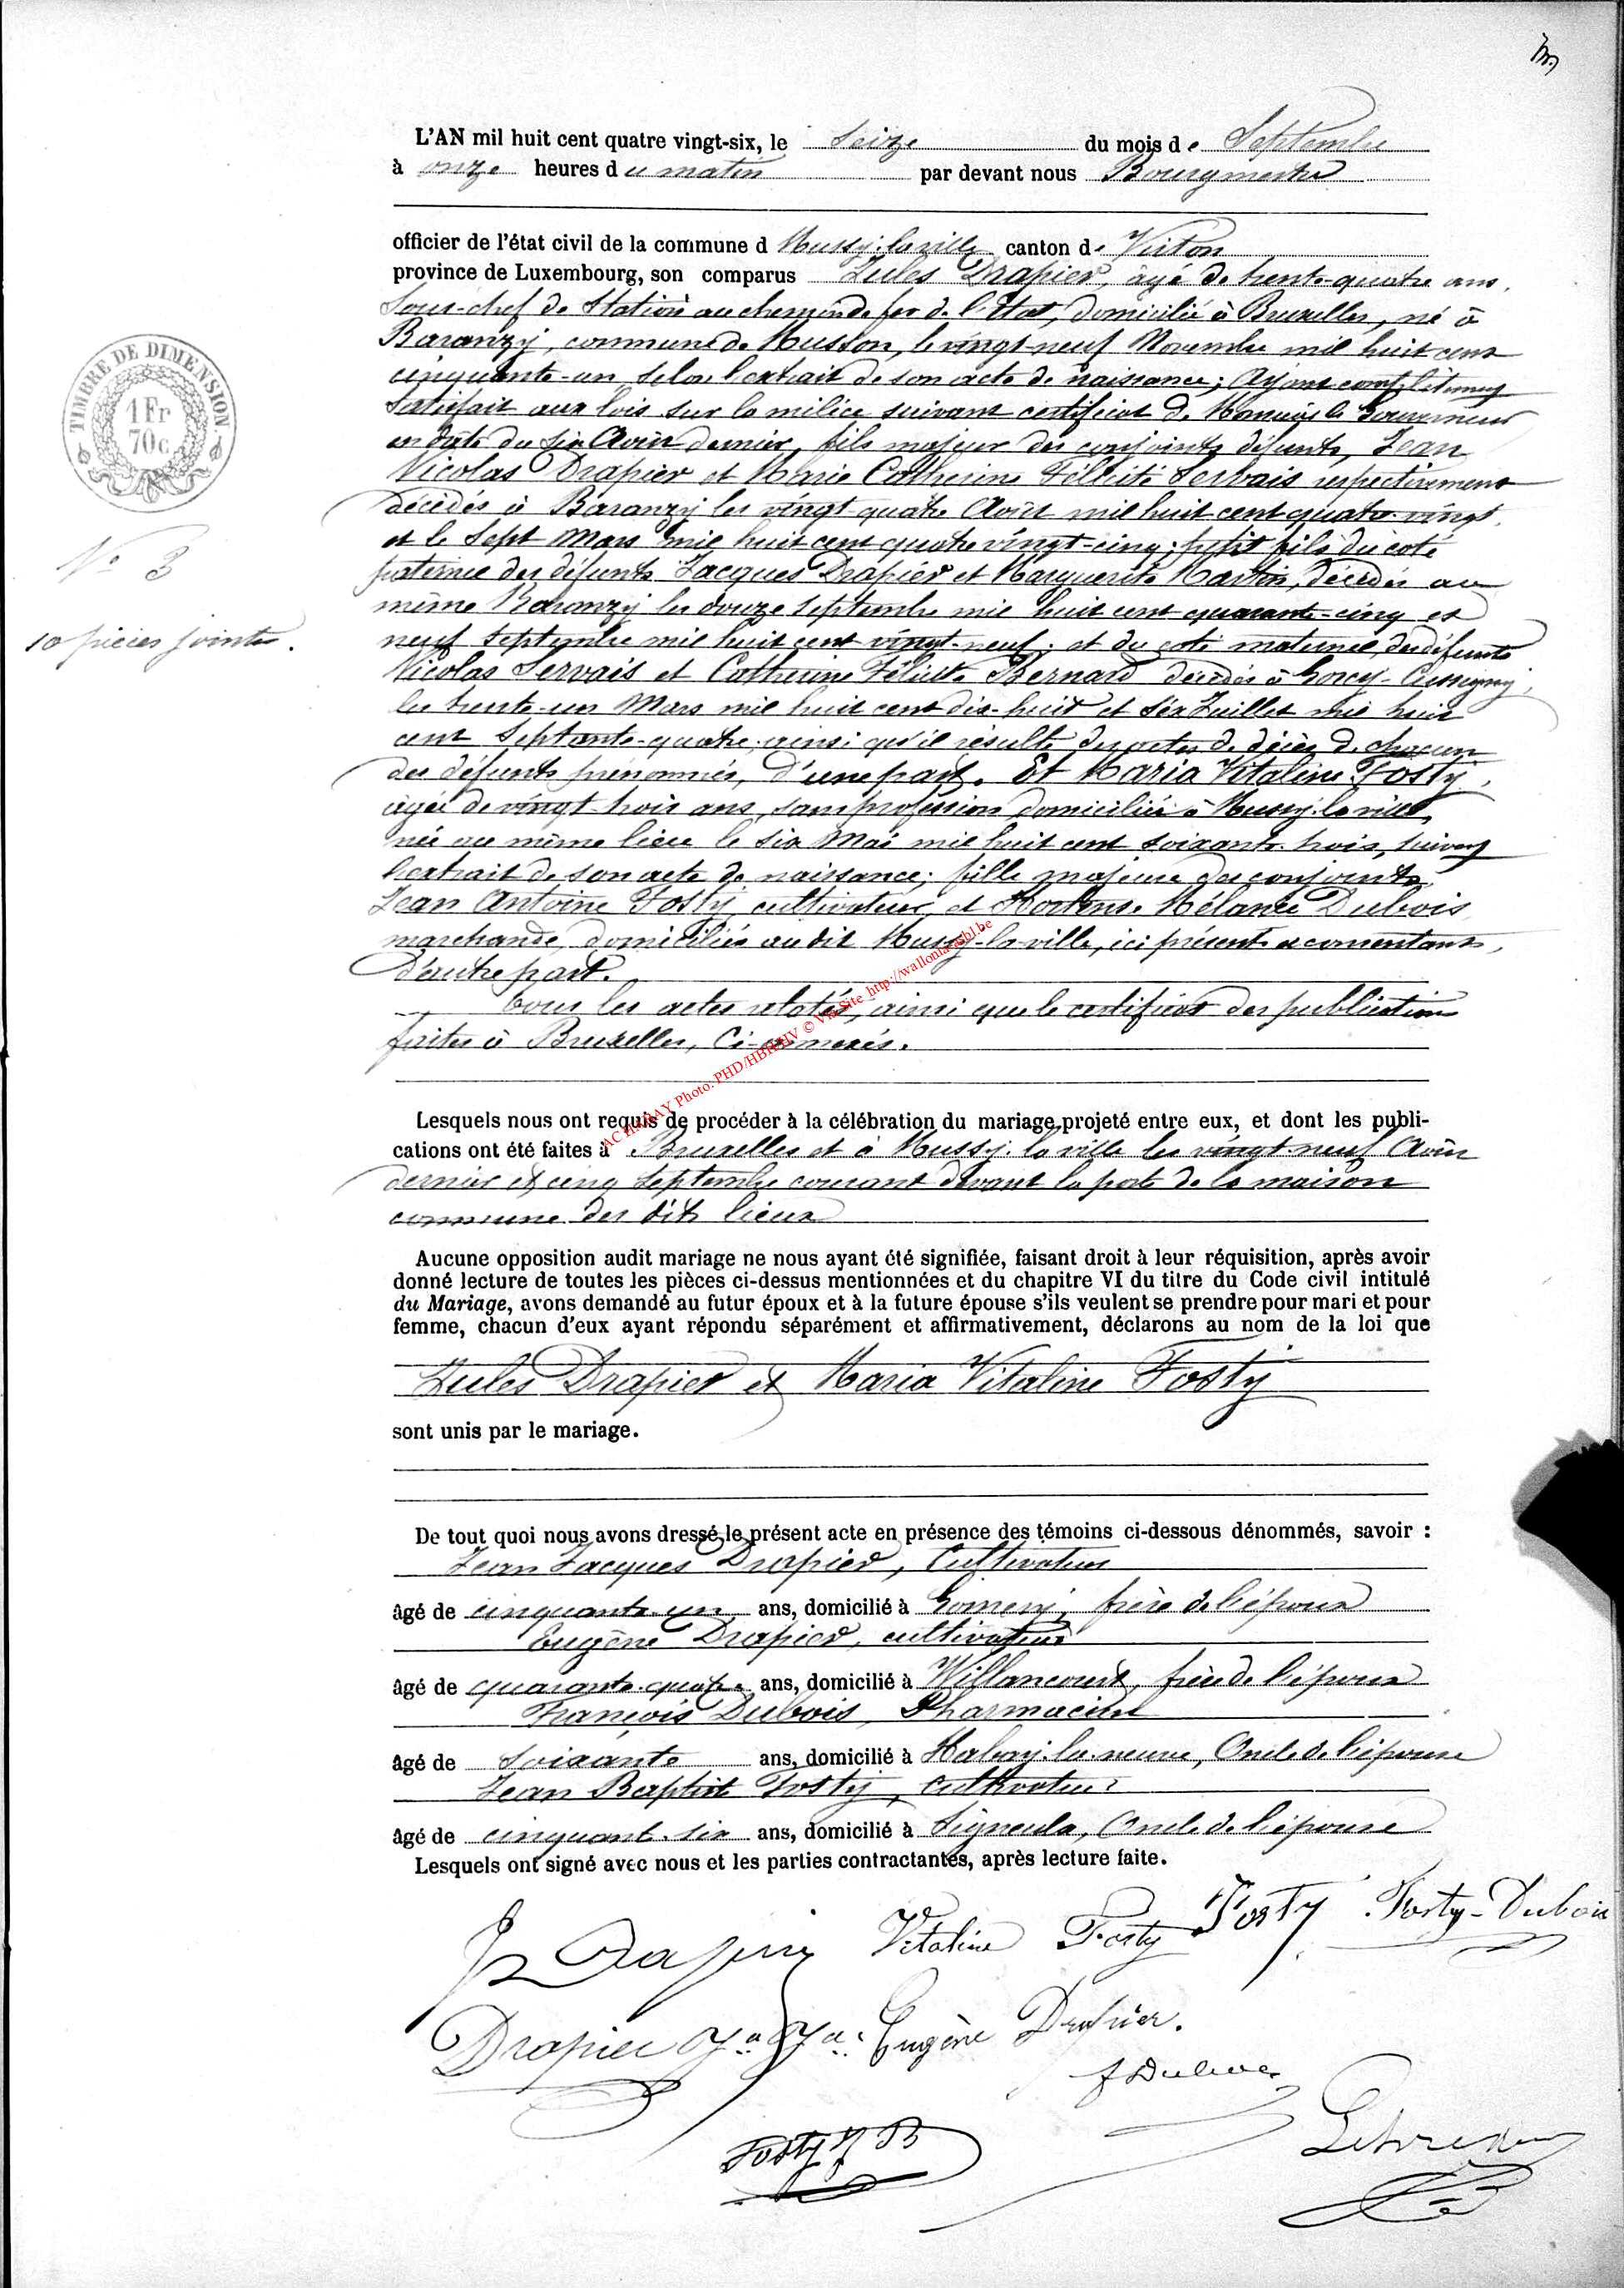 L'AN mil huit cent quatre vingt-six, le seize du mois de Septembre
à onze heures du matin par devant nous Bourgmestre
officier de l'état civil de la commune d Mussy-la-ville canton de Virton
province de Luxembourg, son comparus Jules Drapier, âgé de trente-quatre ans,
Sous-chef de Station au chemin de fer de l'Etat, domicilié à Bruxelles, né à
Baranzy, commune de Musson, le vingt-neuf Novembre mil huit cent
cinquante-un selon l'extrait de son acte de naissance; Ayant complètement
Satisfait aux lois sur la milice suivant certificat de Monsieur le Gouverneur
en date du six Août dernier, fils majeur des conjoints défunts, Jean
Nicolas Drapier et Marie Catherine Félicité Servais respectivement
décédés à Baranzy les vingt-quatre Août mil huit cent quatre-vingt
et le Sept Mars mil huit cent quatre vingt-cinq; petit fils du coté
paternel des défunts Jacques Drapier et Marguerite Martin, décédés au
même Baranzy les douze Septembre mil huit cent quarante-cinq et
neuf Septembre mil huit cent vingt-neuf; et du coté maternel, des défunts
Nicolas Servais et Catherine Félicité Bernard décédés à Gorcy-Cussigny,
les trente-un Mars mil huit cent dix-huit et six Juillet mil huit
cent Septante-quatre, ainsi qu'il résulte des actes de décès de chacun
des défunts prénommés, d'une part. Et Maria Vitaline Fosty,
âgée de vingt-trois ans, sans profession domiciliée à Mussy-la-ville,
née au même lieu le six Mai mil huit cent soixante-trois, suivant
l'extrait de son acte de naissance; fille majeure des conjoints
Jean Antoine Fosty, cultivateur, et Hortense Mélanie Dubois
marchande, domiciliés au dit Mussy-la-ville, ici présents et consentants,
d'autre part.
tous les actes relatés, ainsi que le certificat des publications
faites à Bruxelles, Ci-annexés.
Lesquels nous ont requis de procéder à la célébration du mariage projeté entre eux, et dont les publi-
cations ont été faites à Bruxelles et à Mussy-la-ville les vingt-neuf Août
dernier et cinq Septembre courant devant la porte de la maison
commune des dits lieux
Aucune opposition audit mariage ne nous ayant été signifiée, faisant droit à leur réquisition, après avoir
donné lecture de toutes les pièces ci-dessus mentionnées et du chapitre VI du titre du Code civil intitulé
du Mariage, avons demandé au futur époux et à la future épouse s'ils veulent se prendre pour mari et pour
femme, chacun d'eux ayant répondu séparément et affirmativement, déclarons au nom de la loi que
Jules Drapier et Maria Vitaline Fosty
sont unis par le mariage.
De tout quoi nous avons dressé le présent acte en présence des témoins ci-dessous dénommés, savoir :
Jean Jacques Drapier, Cultivateur
âgé de cinquante-un ans, domicilié à Gomery, frère de l'époux
Eugène Drapier, cultivateur
âgé de quarante-quatre ans, domicilié à Willancourt, frère de l'époux
François Dubois, Pharmacien
âgé de soixante ans, domicilié à Habay-la-neuve, Oncle de l'épouse
Jean Baptiste Fosty, cultivateur
âgé de cinquante-six ans, domicilié à Signeulx, Oncle de l'épouse
Lesquels ont signé avec nous et les parties contractantes, après lecture faite.
J Drapier Vitaline Fosty Fosty Fosty-Dubois
Drapier Jn Jcs Eugène Drapier.
f Dubois
Fosty J B
TIMBRE DE DIMENSION
1 Fr
70c
N° 3
10 pièces jointes.
AC HABAY Photo: PHD/HBR/HV © Via Site http://wallonia-asbl.be